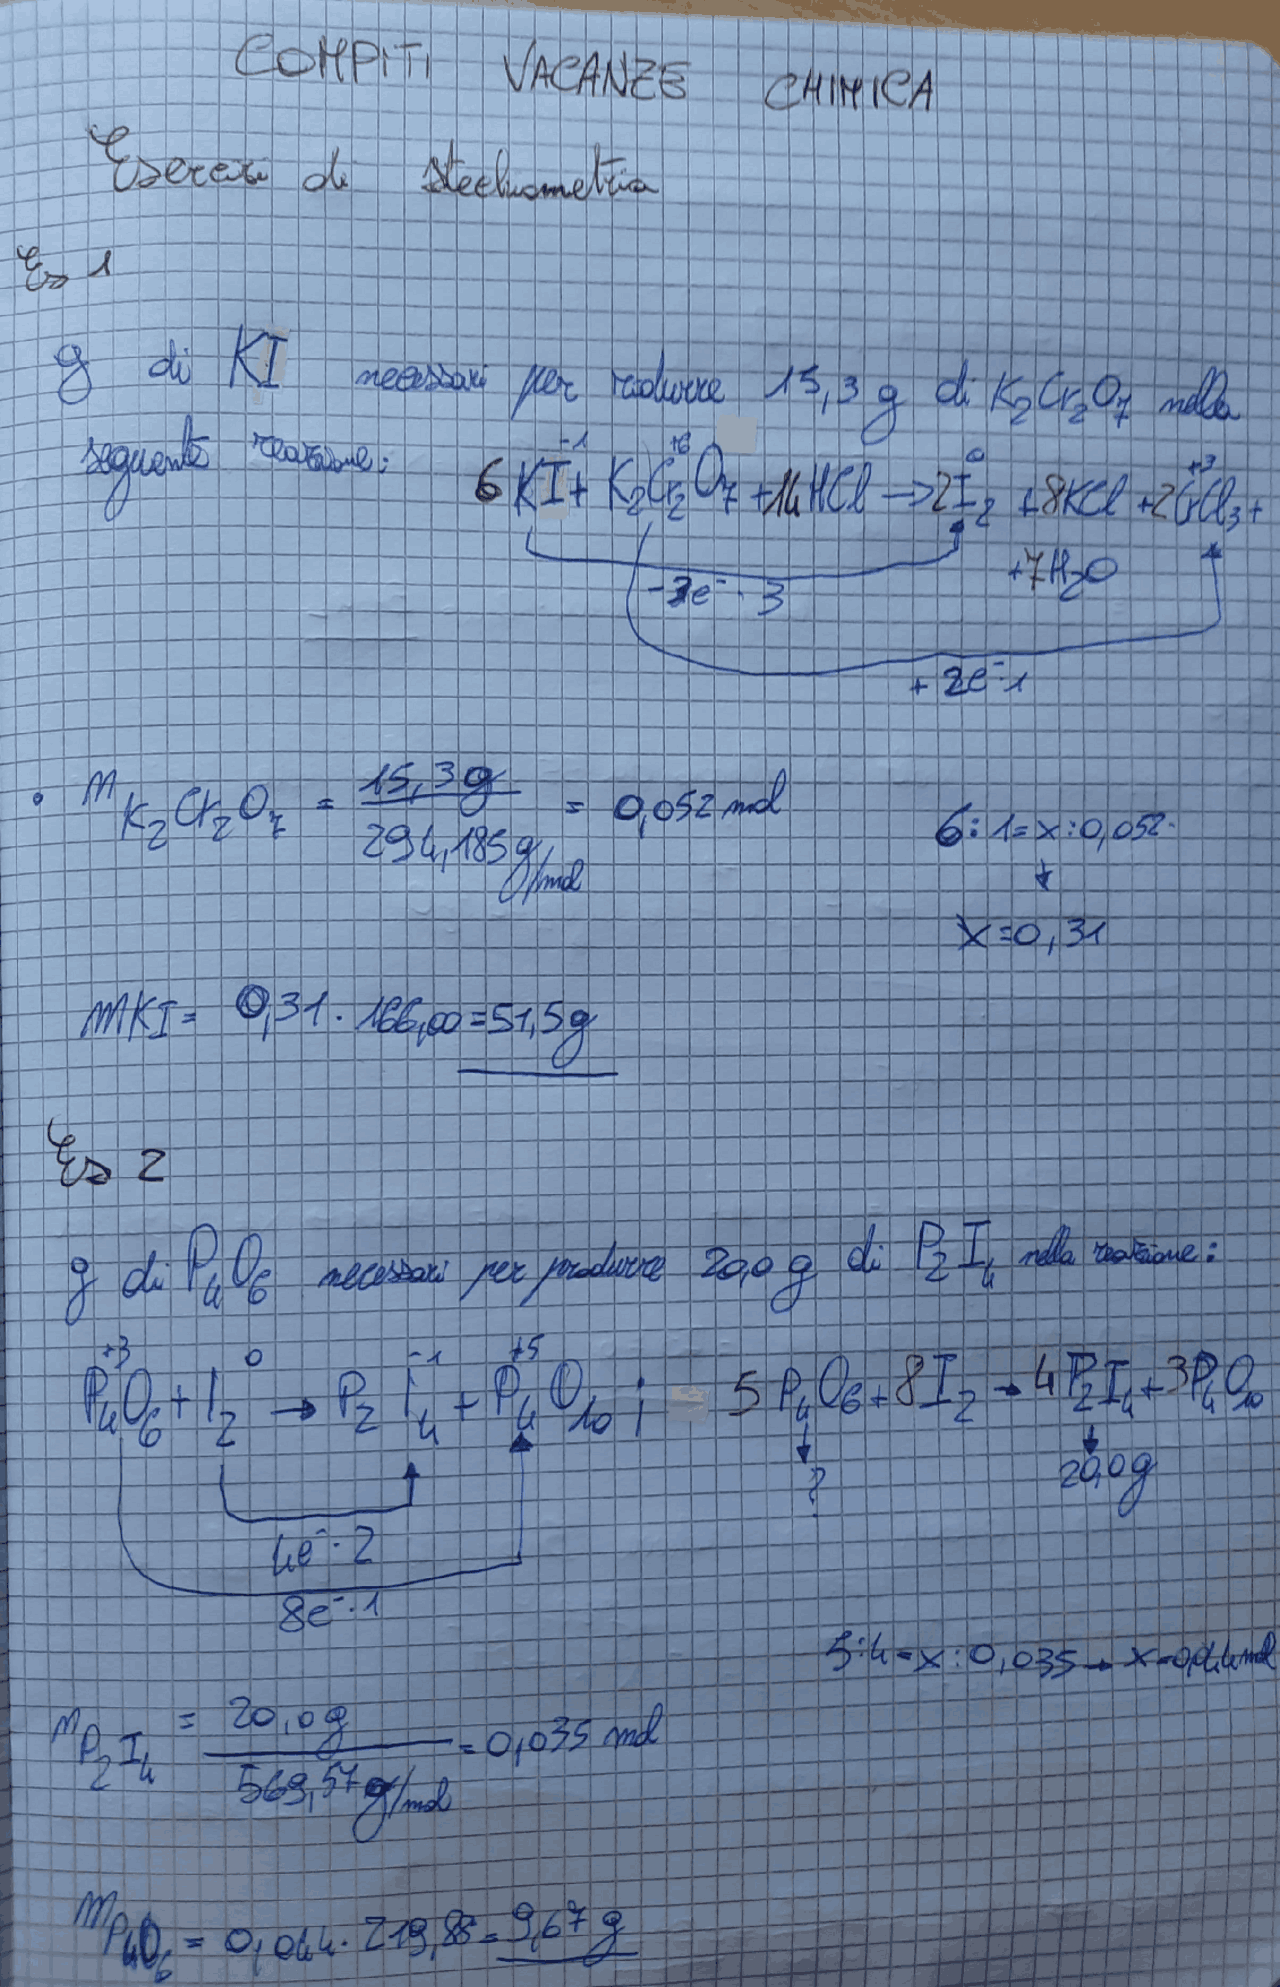 COMPITI VACANZE CHIMICA
Esercizi di stechiometria
Es 1
g di KI necessari per ridurre 15,3 g di K₂Cr₂O₇ nella
seguente reazione:
-1 +6 0 +3
6KI + K₂Cr₂O₇ + 14HCl → 2I₂ + 8KCl + 2CrCl₃ +
+7H₂O
e⁻ · 3
+ e⁻ · 1
• nK₂Cr₂O₇ = 15,3 g / 294,185 g/mol = 0,052 mol
6 : 1 = x : 0,052
↓
x = 0,31
mKI = 0,31 · 166,00 = 51,5 g
Es 2
g di P₄O₆ necessari per produrre 20,0 g di P₂I₄ nella reazione:
+3 0 -1 +5
P₄O₆ + I₂ → P₂I₄ + P₄O₁₀ ; 5P₄O₆ + 8I₂ → 4P₂I₄ + 3P₄O₁₀
↓ ↓
? 20,0 g
4e⁻ · 2
8e⁻ · 1
5 : 4 = x : 0,035 → x = 0,044 mol
nP₂I₄ = 20,0 g / 569,57 g/mol = 0,035 mol
mP₄O₆ = 0,044 · 219,88 = 9,67 g